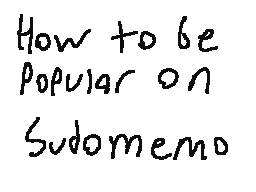 How to be
Popular on
Sudomemo